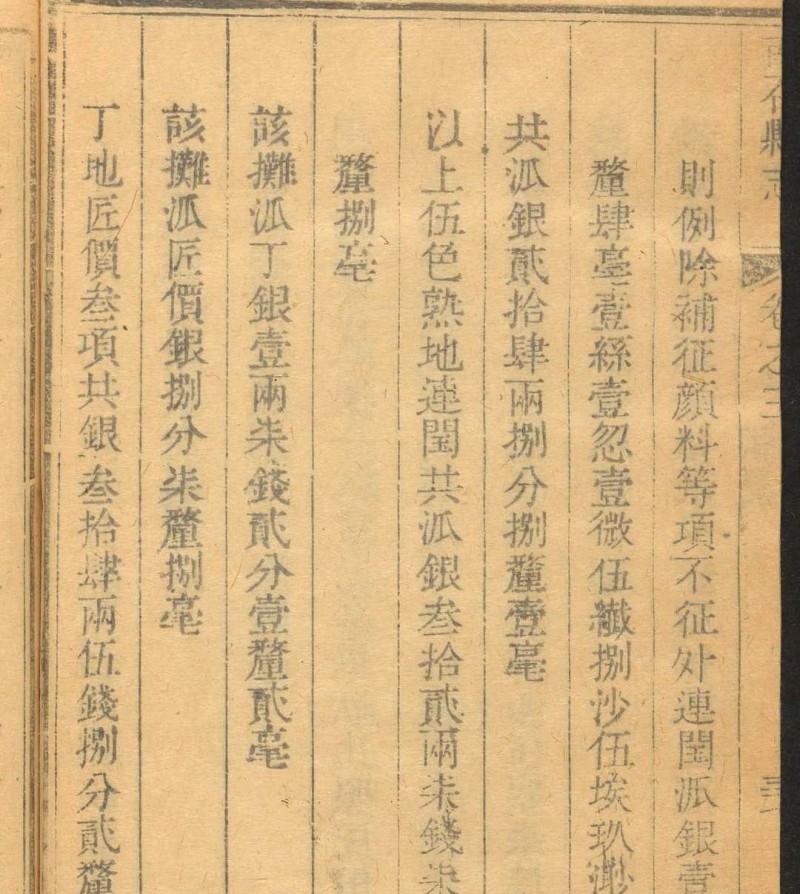 縣志
卷之三
則例除補征顔料等項不征外連閏派銀壹
釐肆毫壹絲壹忽壹微伍纖捌沙伍埃玖渺
共派銀貳拾肆兩捌分捌釐壹毫
以上伍色熟地連閏共派銀叁拾貳兩柒錢柒
釐捌毫
該攤派丁銀壹兩柒錢貳分壹釐貳毫
該攤派匠價銀捌分柒釐捌毫
丁地匠價叁項共銀叁拾肆兩伍錢捌分貳釐